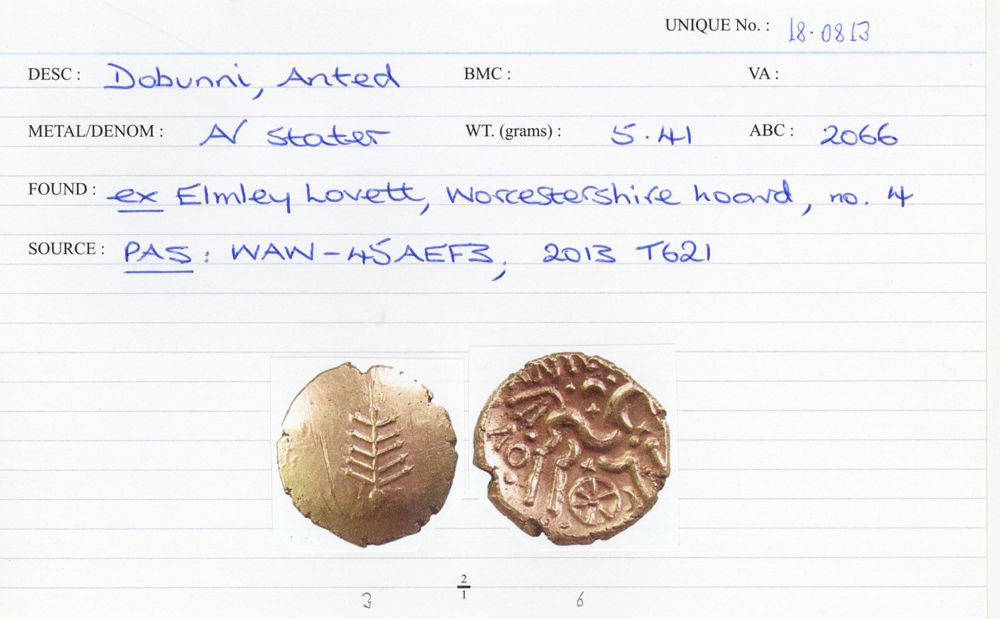 UNIQUE No. : 18.0813
DESC : Dobunni, Anted BMC : VA :
METAL/DENOM : AV stater WT. (grams) : 5.41 ABC : 2066
FOUND : ex Elmley Lovett, Worcestershire hoard, no. 4
SOURCE : PAS: WAW-45AEF3, 2013 T621
2
1
3 6